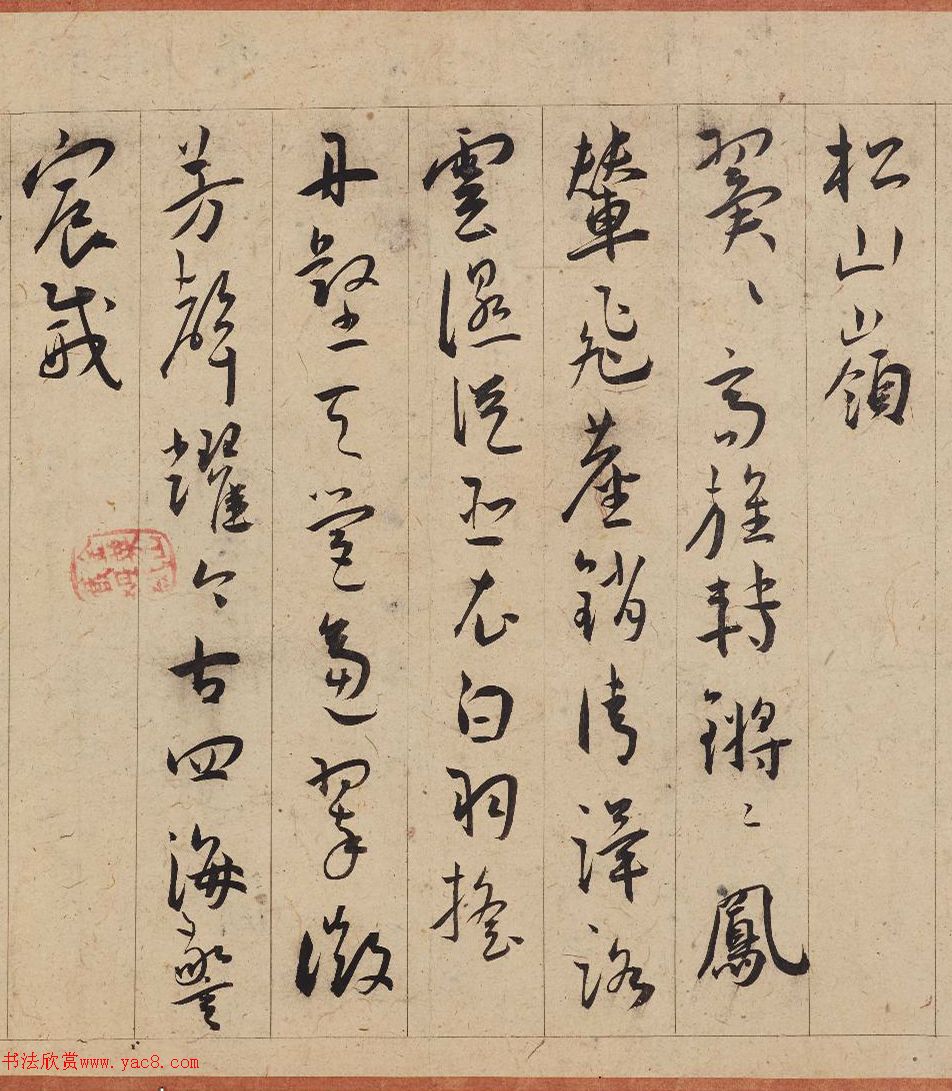 松山嶺
翼〻高旌轉鏘〻鳳
輦飛塵銷清蹕路
雲濕從臣衣白羽搖
丹壑天營逼翠微
芳聲耀今古四海警
宸威
书法欣赏www.yac8.com